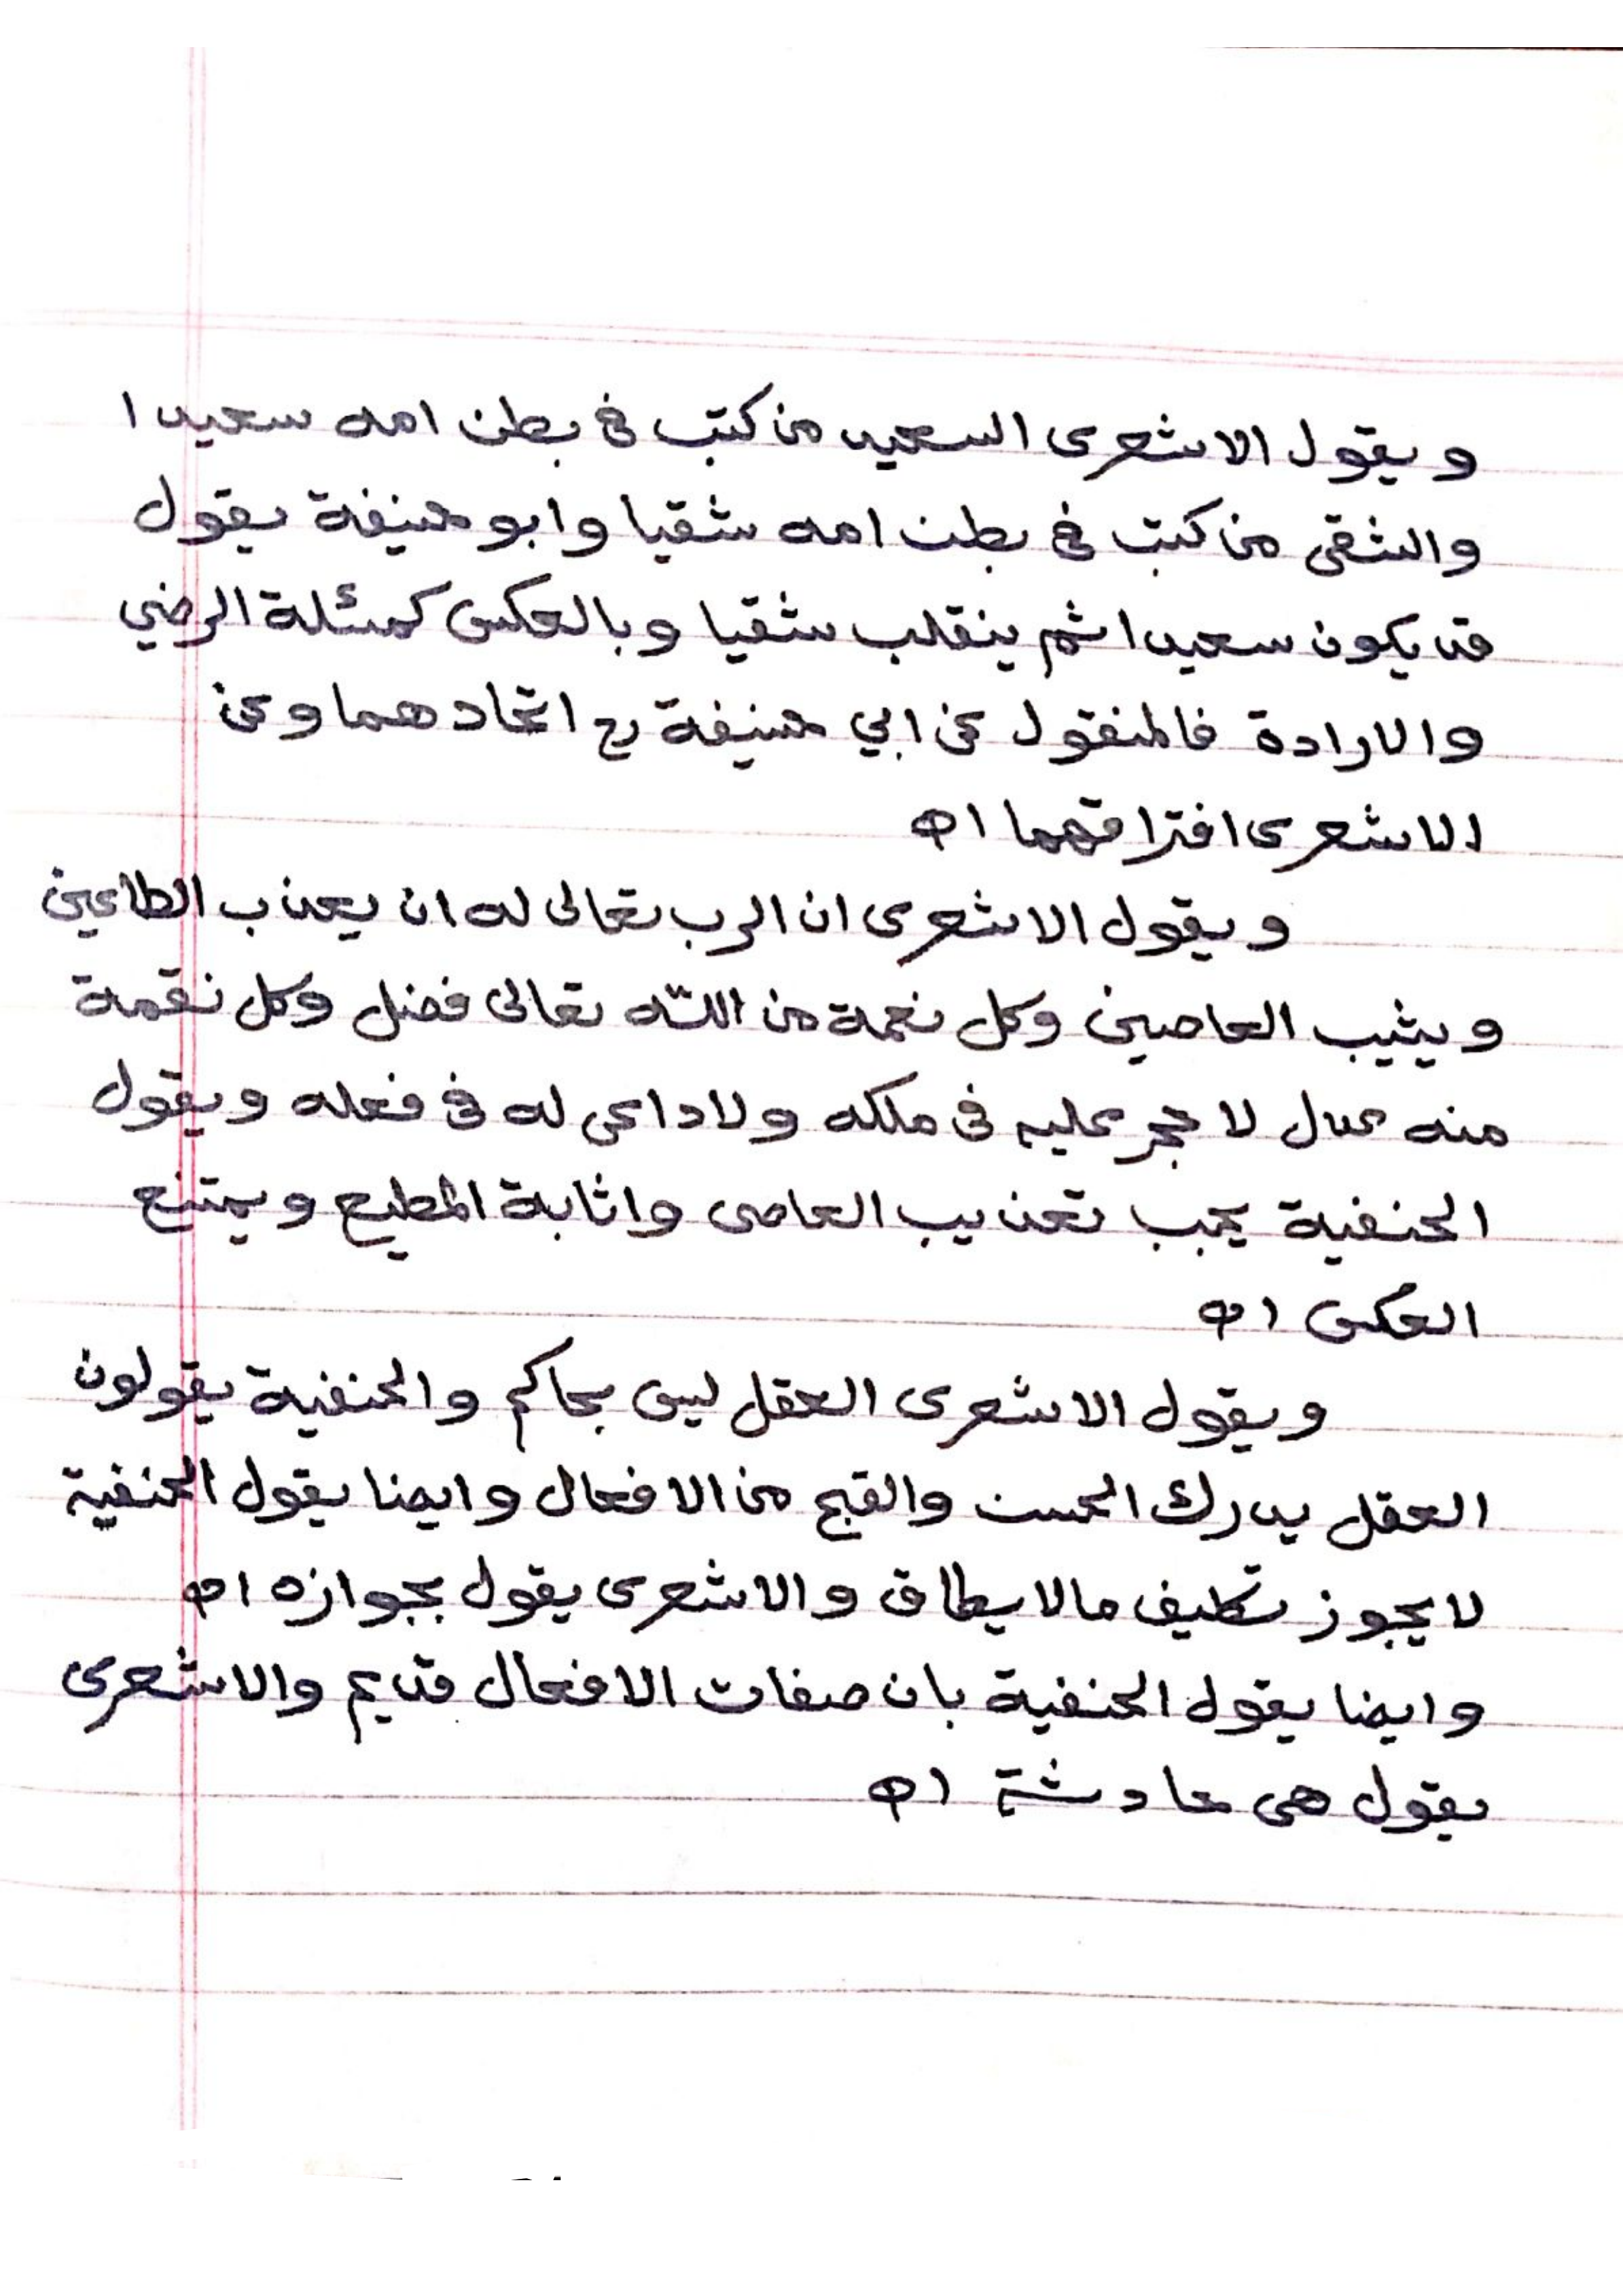 ويقول الاشعرى السعيد من كتب فى بطن امه سعيدا
والشقى من كتب فى بطن امه شقيا وابو حنيفة يقول
قد يكون سعيدا ثم ينقلب شقيا وبالعكس كمسئلة الرضي
والارادة فالمنقول عن ابي حنيفة رح اتحادهما وعن
الاشعرى افتراقهما اه
ويقول الاشعرى ان الرب تعالى له ان يعذب الطاعين
ويثيب العاصين وكل نعمة من اللّٰه تعالى فضل وكل نقمة
منه عدل لا حجر عليه فى ملكه ولا داعى له فى فعله ويقول
الحنفية يجب تعذيب العاصى واثابة المطيع ويمتنع
العكس اه
ويقول الاشعرى العقل ليس بحاكم والحنفية يقولون
العقل يدرك الحسن والقبح من الافعال وايضا يقول الحنفية
لا يجوز تكليف مالا يطاق والاشعرى يقول بجوازه اه
وايضا يقول الحنفية بان صفات الافعال قديم والاشعرى
يقول هى حادثة اه